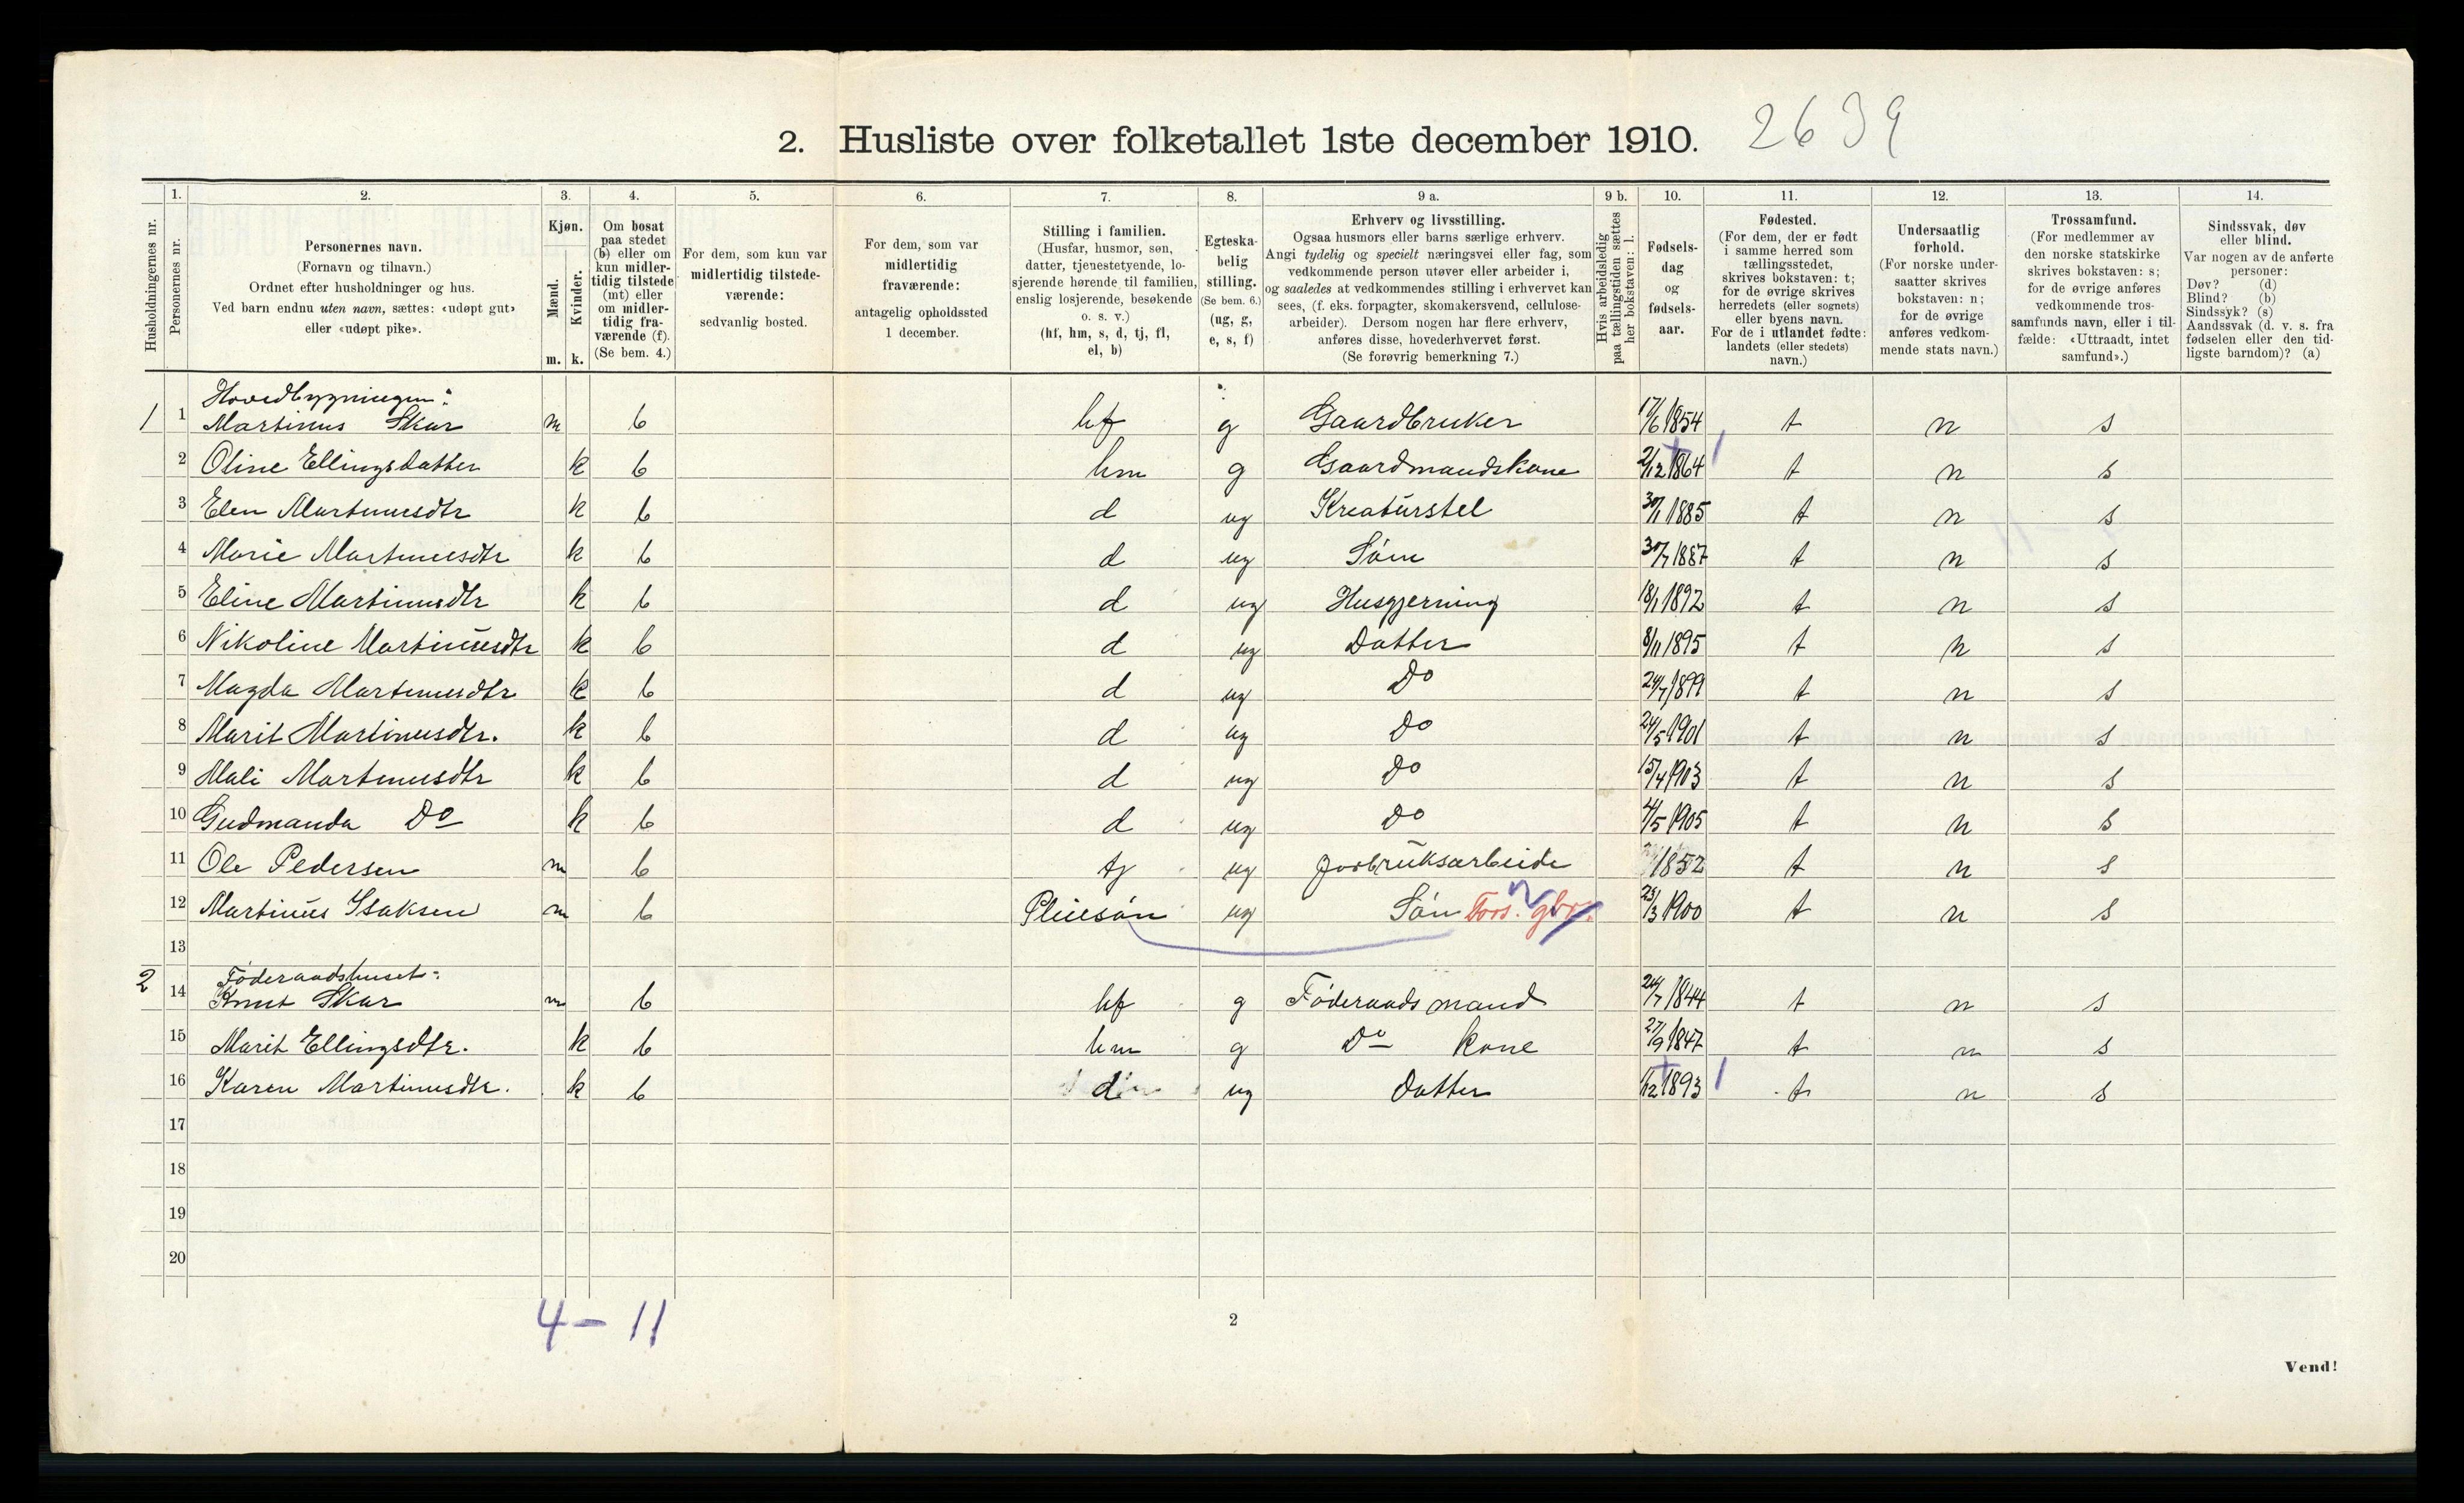 2. Husliste over folketallet 1ste december 1910. 2639
1. 2. 3. 4. 5. 6. 7. 8. 9 a. 9 b. 10. 11. 12. 13. 14.
Husholdningernes nr.
Personernes nr.
Personernes navn.
(Fornavn og tilnavn.)
Ordnet efter husholdninger og hus.
Ved barn endnu uten navn, sættes: «udøpt gut»
eller «udøpt pike».
Kjøn.
Mænd.
Kvinder.
m. k.
Om bosat
paa stedet
(b) eller om
kun midler-
tidig tilstede
(mt) eller
om midler-
tidig fra-
værende (f).
(Se bem. 4.)
For dem, som kun var
midlertidig tilstede-
værende:
sedvanlig bosted.
For dem, som var
midlertidig
fraværende:
antagelig opholdssted
1 december.
Stilling i familien.
(Husfar, husmor, søn,
datter, tjenestetyende, lo-
sjerende hørende til familien,
enslig losjerende, besøkende
o. s. v.)
(hf, hm, s, d, tj, fl,
el, b)
Egteska-
belig
stilling.
(Se bem. 6.)
(ug, g,
e, s, f)
Erhverv og livsstilling.
Ogsaa husmors eller barns særlige erhverv.
Angi tydelig og specielt næringsvei eller fag, som
vedkommende person utøver eller arbeider i,
og saaledes at vedkommendes stilling i erhvervet kan
sees, (f. eks. forpagter, skomakersvend, cellulose-
arbeider). Dersom nogen har flere erhverv,
anføres disse, hovederhvervet først.
(Se forøvrig bemerkning 7.)
Hvis arbeidsledig
paa tællingstiden sættes
her bokstaven: l.
Fødsels-
dag
og
fødsels-
aar.
Fødested.
(For dem, der er født
i samme herred som
tællingsstedet,
skrives bokstaven: t;
for de øvrige skrives
herredets (eller sognets)
eller byens navn.
For de i utlandet fødte:
landets (eller stedets)
navn.)
Undersaatlig
forhold.
(For norske under-
saatter skrives
bokstaven: n;
for de øvrige
anføres vedkom-
mende stats navn.)
Trossamfund.
(For medlemmer av
den norske statskirke
skrives bokstaven: s;
for de øvrige anføres
vedkommende tros-
samfunds navn, eller i til-
fælde: «Uttraadt, intet
samfund».)
Sindssvak, døv
eller blind.
Var nogen av de anførte
personer:
Døv? (d)
Blind? (b)
Sindssyk? (s)
Aandssvak (d. v. s. fra
fødselen eller den tid-
ligste barndom)? (a)
Hovedbygningen:
1 1 Martinus Skar m b hf g Gaardbruker 17/6 1854 t n s
2 Oline Ellingsdatter k b hm g Gaardmandskone 2/12 1864 t n s
3 Elen Martinusdtr k b d ug Kreaturstel 30/1 1885 t n s
4 Marie Martinusdtr k b d ug Søm 30/7 1887 t n s
5 Eline Martinusdtr k b d ug Husgjerning 18/1 1892 t n s
6 Nikoline Martinusdtr k b d ug Datter 8/11 1895 t n s
7 Magda Martinusdtr k b d ug Do 24/7 1899 t n s
8 Marit Martinusdtr. k b d ug Do 24/5 1901 t n s
9 Mali Martinusdtr k b d ug Do 15/4 1903 t n s
10 Gudmanda Do k b d ug Do 4/5 1905 t n s
11 Ole Pedersen m b tj ug Jorbruksarbeide 1852 t n s
12 Martinus Isaksen m b Pleiesøn ug Søn Fors. gbr. 23/3 1900 t n s
13
Føderaadshuset:
2 14 Knut Skar m b hf g Føderaadsmand 24/7 1844 t n s
15 Marit Ellingsdtr. k b hm g Do kone 27/9 1847 t n s
16 Karen Martinusdtr. k b d ug Datter 1/12 1893 t n s
17
18
19
20
4 - 11
2
Vend!